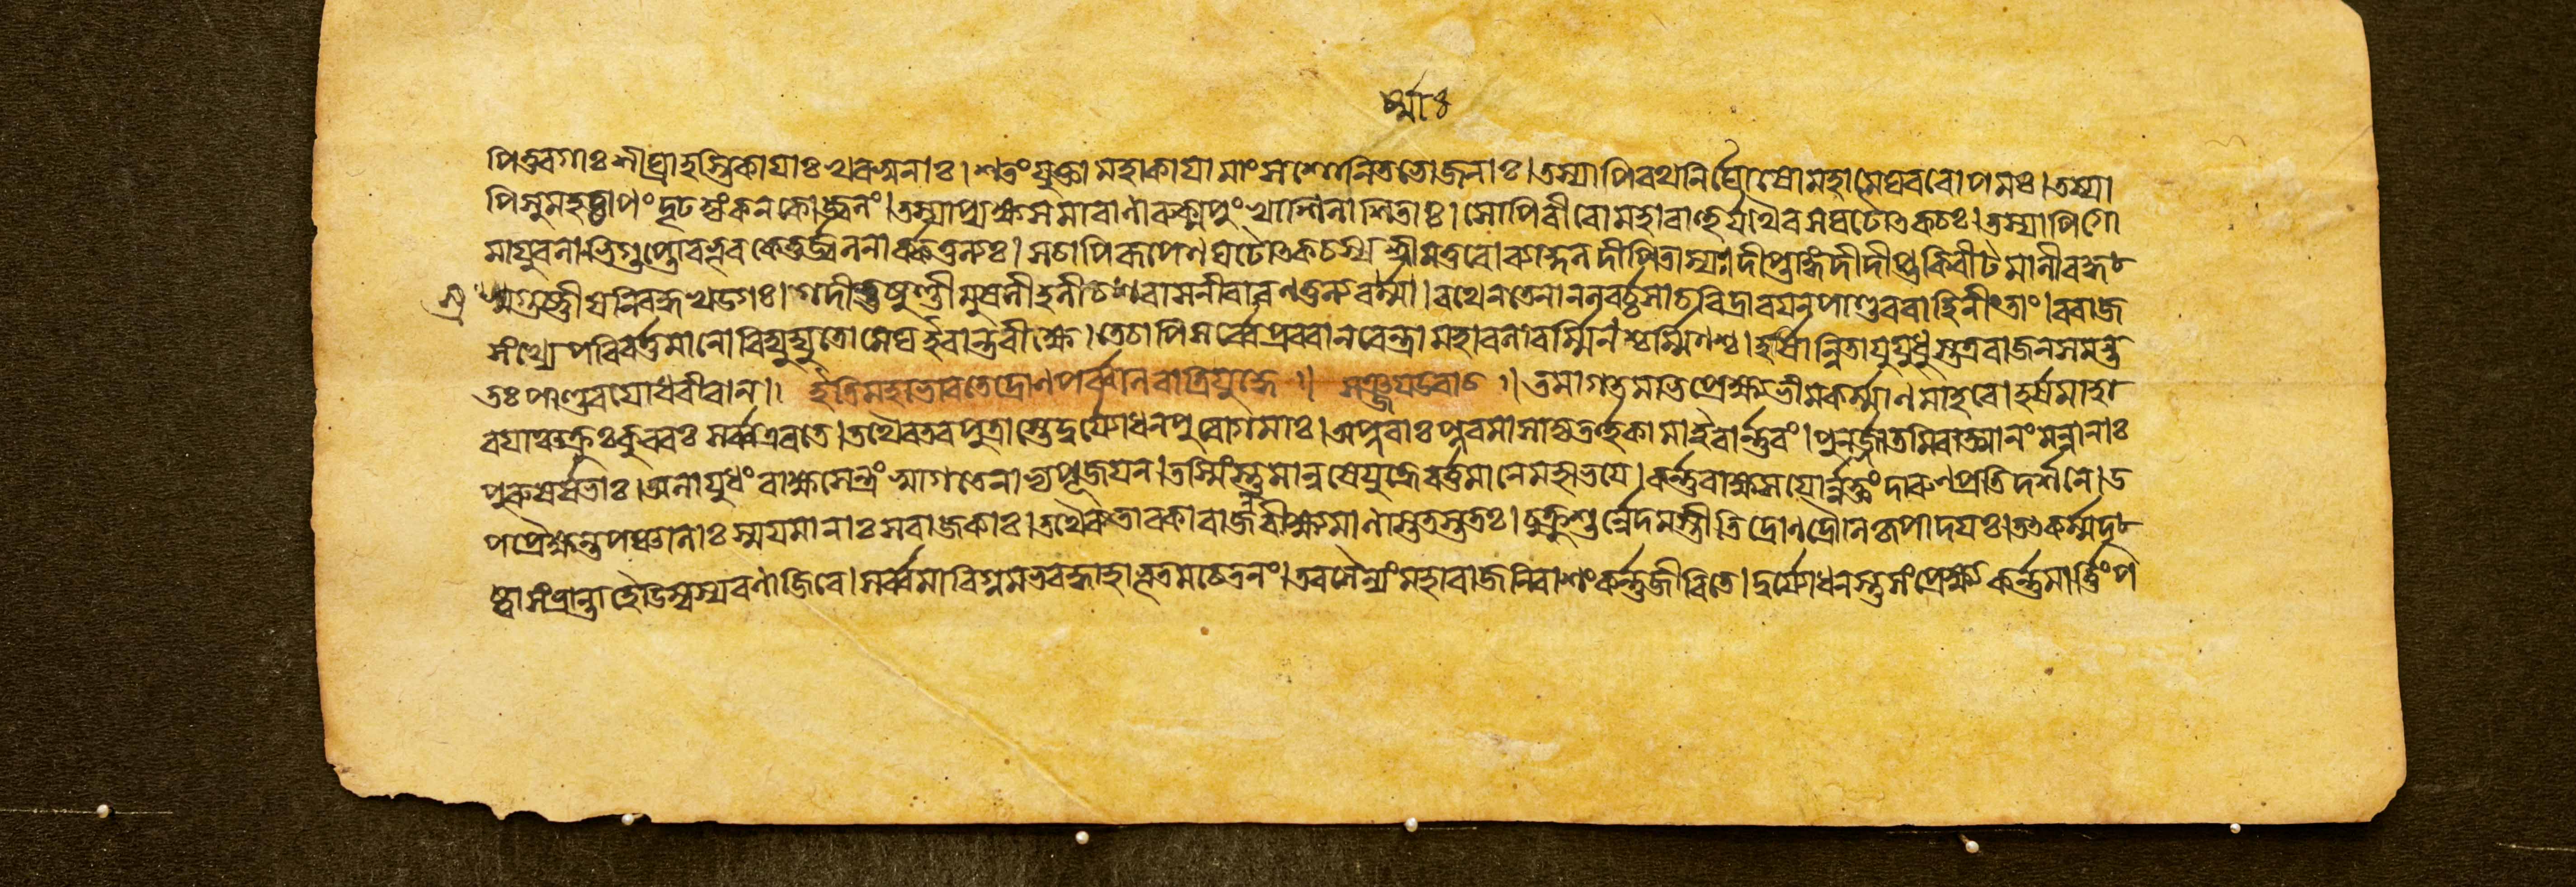 পিতুরগাঃ শীঘ্রাহস্তিকায়াঃ খরস্বনাঃ। শতং যুক্তা মহাকায়া মাংসশোনিতভোজনাঃ। তস্যাপিরথনির্ঘোষোমহামেঘরবোপমঃ। তস্যা
পিসুমহচ্চাপং দৃঢ কনকোজ্জ্বলং। তস্যাপ্যক্ষসমাবাণারুক্মপুংখাশিলাশিতাঃ। সোপিবীরোমহাবাহুর্যথৈবসঘটোৎকচঃ। তস্যাপিগো
মায়ুবলাভিগুপ্তোবভূবকেতুর্জ্বলনার্কতুল্যঃ। সচাপিরূপেণঘটোৎকচস্য শ্রীমত্তরোব্যাকুলদীপিতাস্যঃ। দীপ্তাঙ্গদোদীপ্তকিরীটমালীবদ্ধ
নিবদ্ধখড্গঃ। গদীভুষুণ্ডীমুষলীহলীচশরাসনীবারণতুল্যবর্ষ্মা। রথেনতেনানলবর্চ্চসাচবিদ্রাবয়নপাণ্ডববাহিনীংতাং। ররাজ
সংখ্যেপরিবর্ত্তমানোবিদ্যুদ্যুতোমেঘইবান্তরীক্ষে। তেচাপিসর্ব্বেপ্রবরানরেন্দ্রামহাবলাবর্ম্মিণশ্চর্ম্মিণশ্চ। হর্ষান্বিতাযুযুধুস্তত্ররাজনসমন্ত
তঃপাণ্ডবযোধবীরান॥ ইতিমহাভারতেদ্রোণপর্ব্বণিরাত্রিযুদ্ধে ॥ সঞ্জয়উবাচ ॥ তমাগতমভিপ্রেক্ষ্যভীমকর্ম্মাণমাহবে। হর্ষমাহা
রয়াঞ্চক্রুঃকুরবঃ সর্ব্বএবতে। তথৈবতবপুত্রাস্তেদুর্যোধনপুরোগমাঃ। অপ্লবাঃপ্লবমাসাদ্যতর্ত্তুকামাইবার্ণবং। পুনর্জ্জাতমিবাত্মানংমন্বানাঃ
পুরুষর্ষভাঃ। অলায়ুধংরাক্ষসেন্দ্রং স্বাগতেনাভ্যপূজয়ন। তস্মিংস্ত্বমানুষেযুদ্ধেবর্ত্তমানেমহাভয়ে। কর্ণরাক্ষসয়োর্নক্তংদারুণপ্রতিদর্শনে। উ
পপ্রৈক্ষন্তপঞ্চালাঃ স্ময়মানাঃসরাজকাঃ। তথৈবতাবকারাজনবীক্ষ্যমাণাস্ততস্ততঃ। চুক্রুশুর্নেদমস্তীতি দ্রোণদ্রৌণিকৃপাদয়ঃ। তৎকর্ম্মদৃ
ষ্ট্বাসংভ্রান্তাহৈডিম্বস্যরণাজিরে। সর্ব্বমাবিগ্নমভবদ্ধাহাভূতমচেতনং। তবসৈন্যংমহারাজনিরাশংকর্ণজীবিতে। দুর্যোধনস্তুসংপ্রেক্ষ্য কর্ণমার্ত্তিংপ